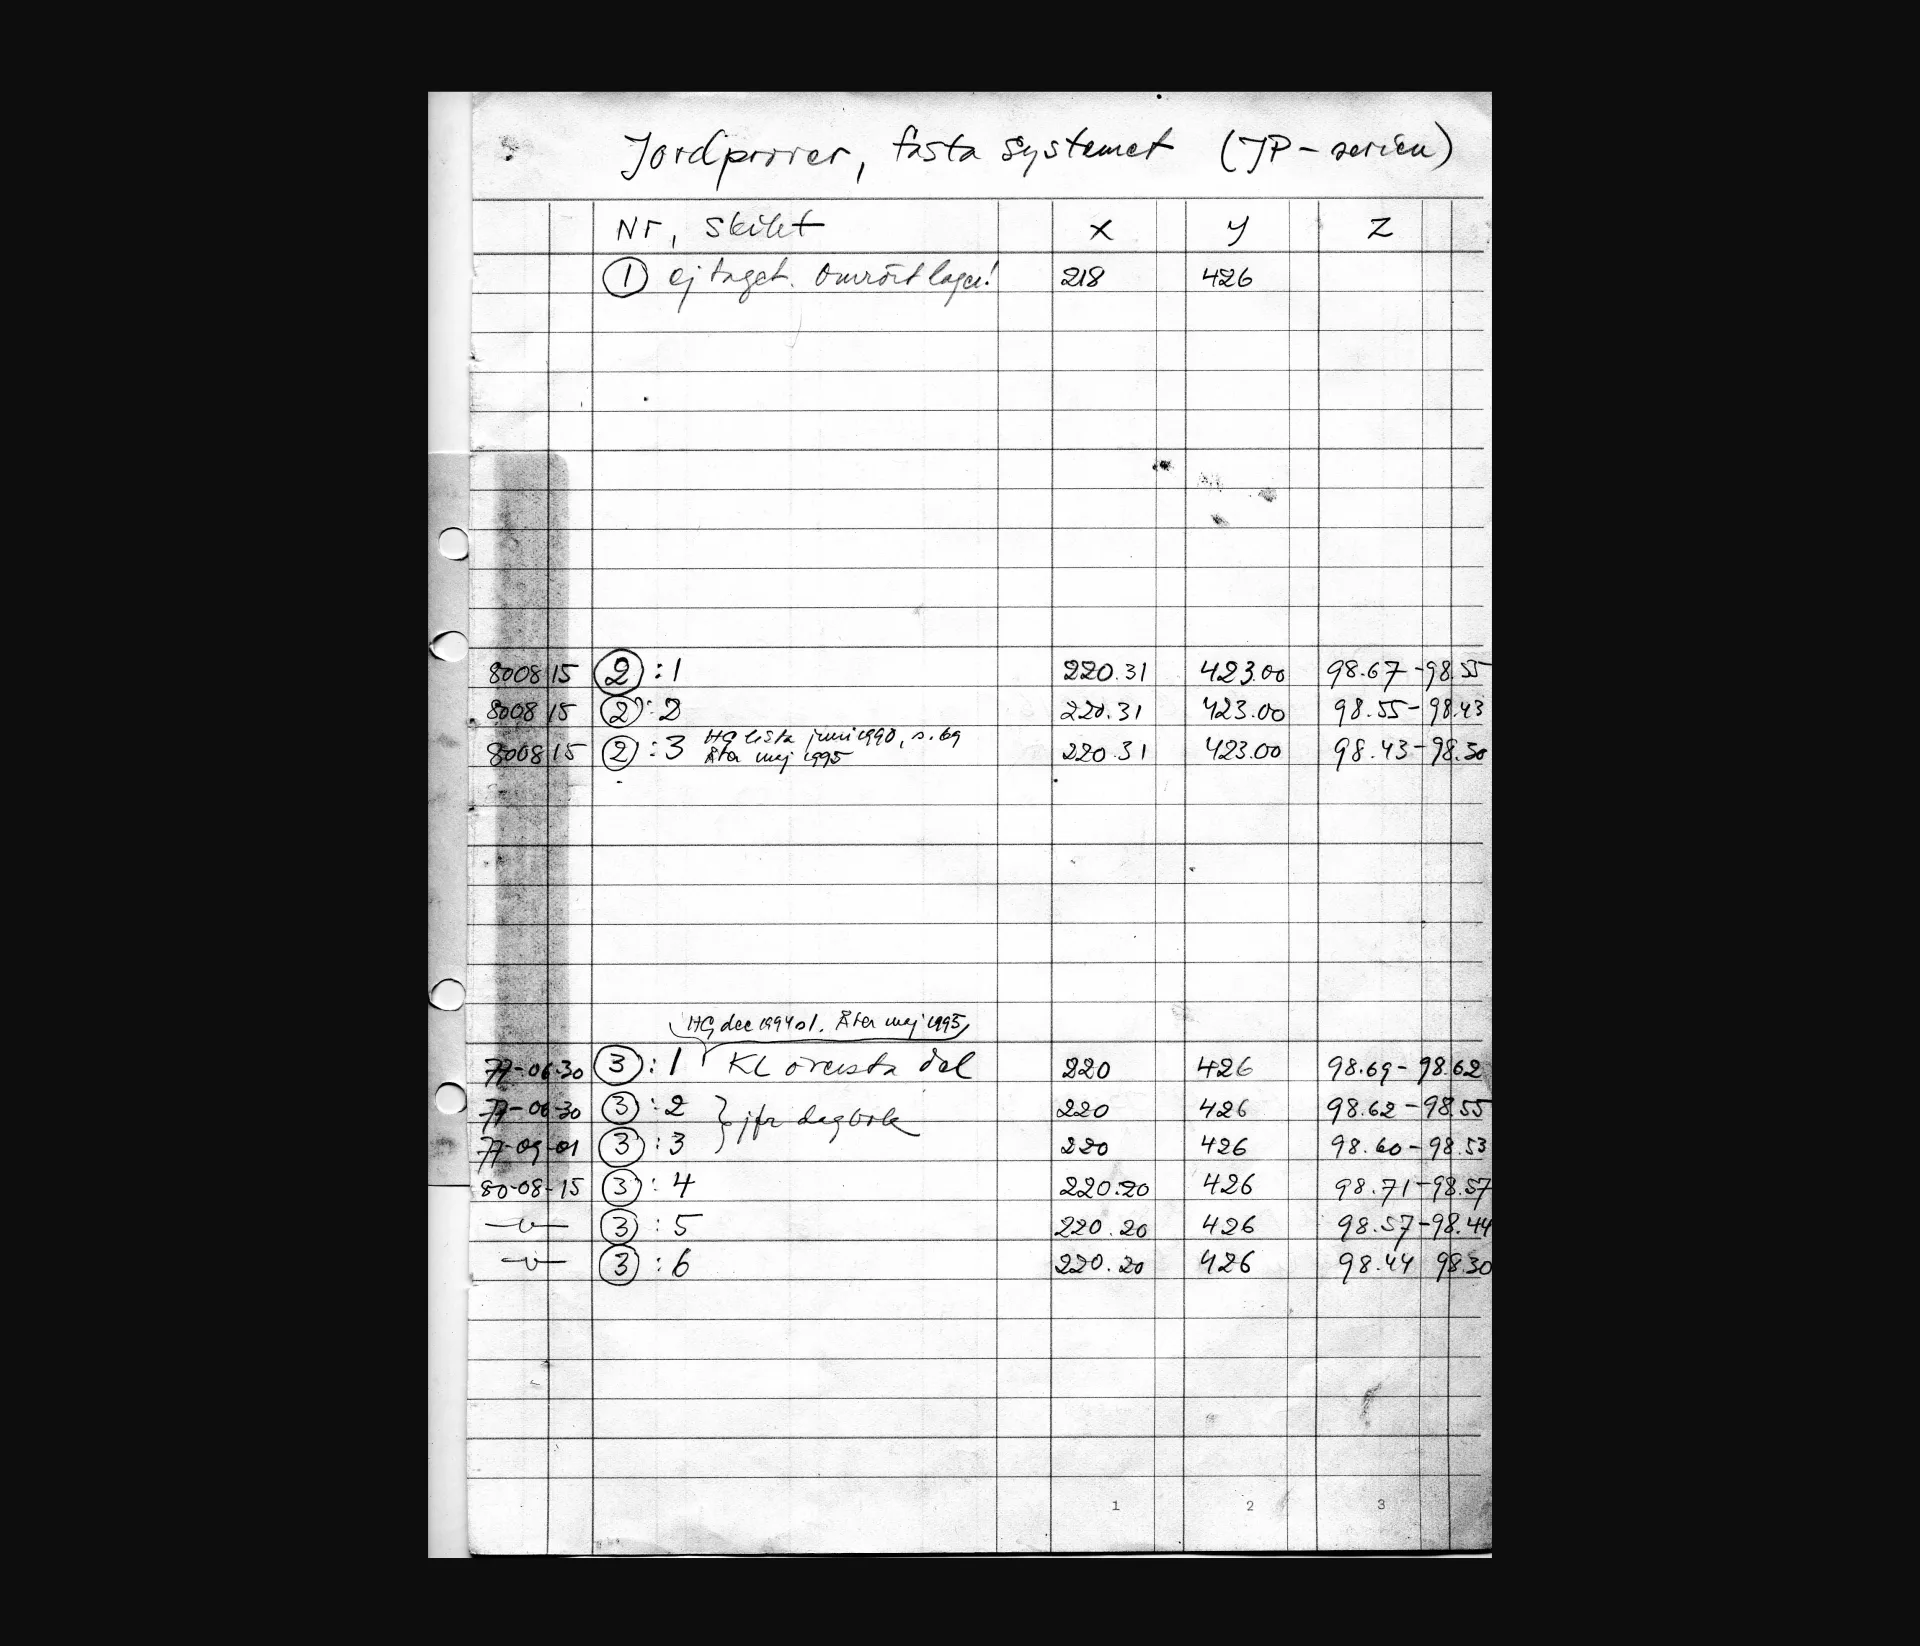 Jordprover, fasta systemet (JP-serien)
Nr, Skikt X Y Z
1 ej taget. Omrört lager! 218 426
800815 2 :1 220.31 423.00 98.67-98.55
800815 2 :2 220.31 423.00 98.55-98.43
HG lista juni 1990, s. 69
800815 2 :3 220.31 423.00 98.43-98.30
Åter maj 1995
HG dec 1994 s1. Åter maj 1995
77-06-30 3 :1 KL översta del 220 426 98.69-98.62
77-06-30 3 :2 220 426 98.62-98.55
} jfr dagbok
77-09-01 3 :3 220 426 98.60-98.53
80-08-15 3 :4 220.20 426 98.71-98.57
—"— 3 :5 220.20 426 98.57-98.44
—"— 3 :6 220.20 426 98.44 98.30
1 2 3